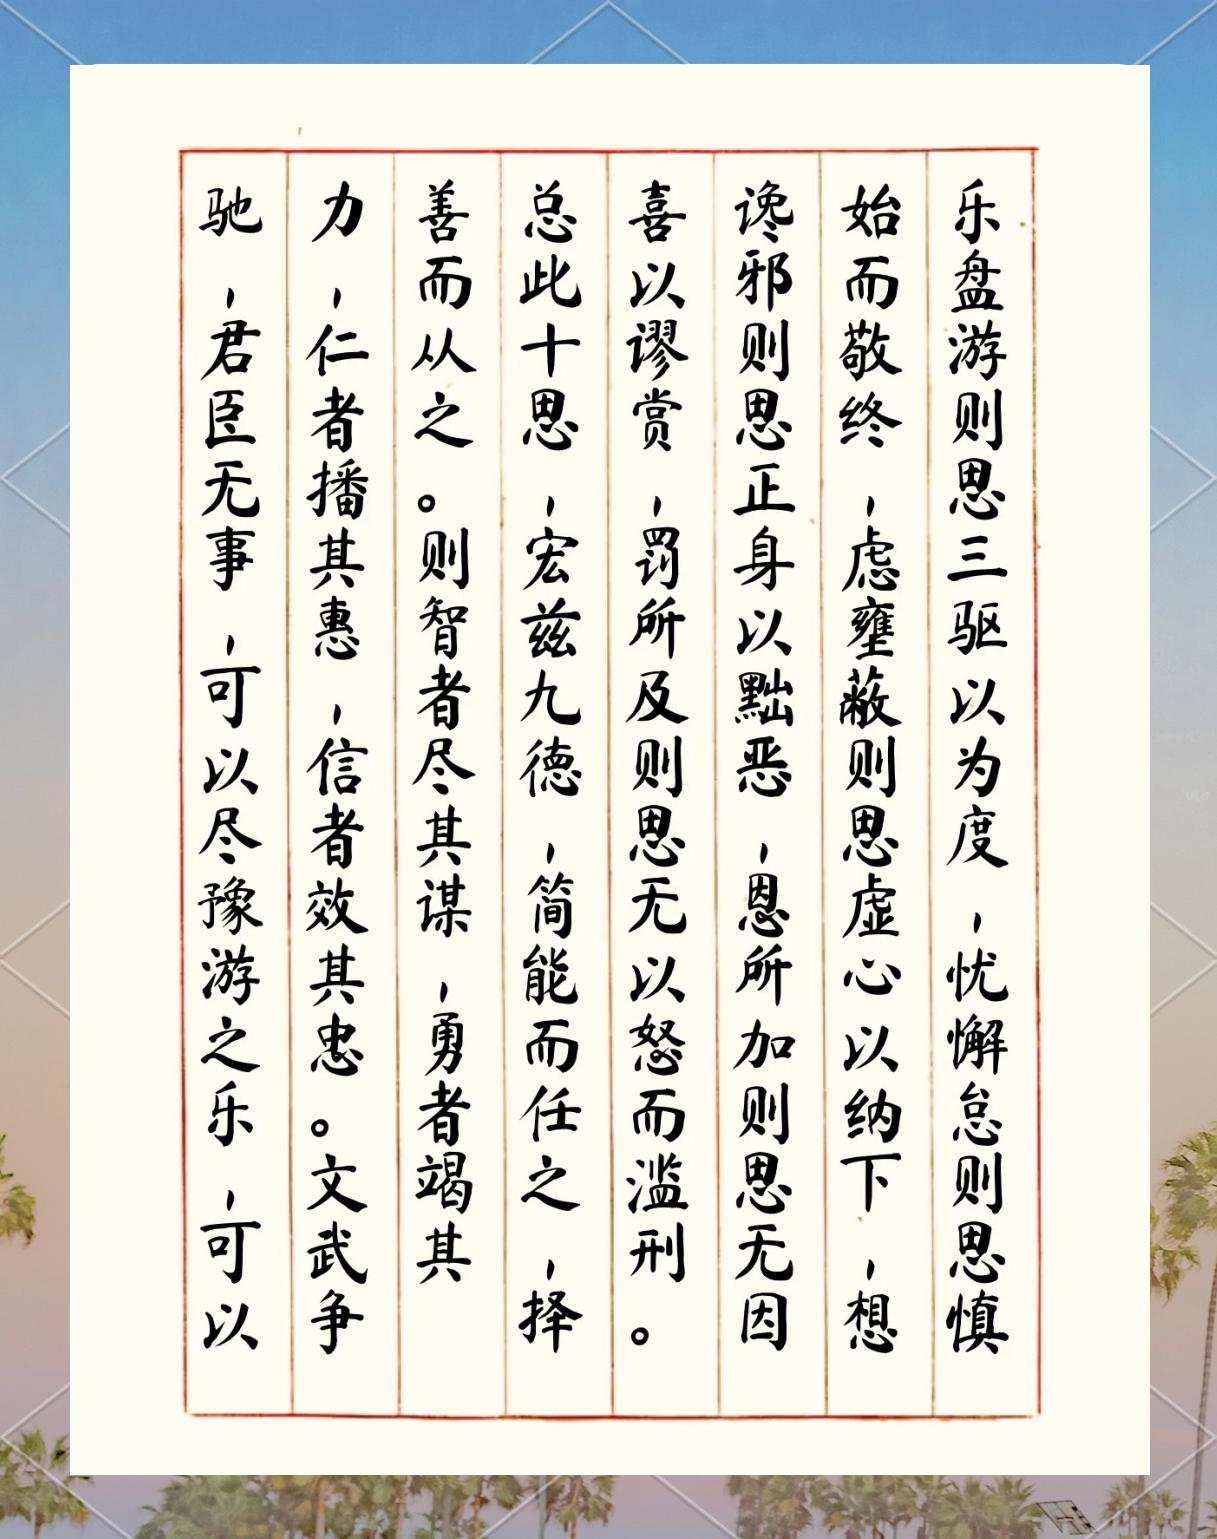 乐盘游则思三驱以为度，忧懈怠则思慎
始而敬终，虑壅蔽则思虚心以纳下，想
谗邪则思正身以黜恶，恩所加则思无因
喜以谬赏，罚所及则思无以怒而滥刑。
总此十思，宏兹九德，简能而任之，择
善而从之。则智者尽其谋，勇者竭其
力，仁者播其惠，信者效其忠。文武争
驰，君臣无事，可以尽豫游之乐，可以